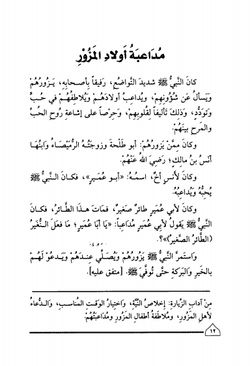 مُدَاعَبَةُ أَولَادِ المَزُورِ
كَانَ النَّبِيُّ ﷺ شَدِيدَ التَّوَاضُعِ، رَفِيقاً بِأَصْحَابِهِ، يَزُورُهُمْ
وَيَسْأَلُ عَنْ شُؤُونِهِمْ، وَيُدَاعِبُ أَوْلَادَهُمْ وَيُلَاطِفُهُمْ فِي حُبٍّ
وَتَوَدُّدٍ، وَذَلِكَ تَأْلِيفاً لِقُلُوبِهِمْ، وَحِرْصاً عَلَى إِشَاعَةِ رُوحِ الحُبِّ
وَالمَرَحِ بَيْنَهُمْ.
وَكَانَ مِمَّنْ يَزُورُهُمْ: أَبُو طَلْحَةَ وَزَوْجَتُهُ الرُّمَيْصَاءُ وَابْنُهَا
أَنَسُ بْنُ مَالِكٍ، رَضِيَ اللهُ عَنْهُمْ.
وَكَانَ لأَنَسٍ أَخٌ، اسْمُهُ: «أَبُو عُمَيْرٍ»، فَكَانَ النَّبِيُّ ﷺ
يُحِبُّهُ وَيُدَاعِبُهُ.
وَكَانَ لأَبِي عُمَيْرٍ طَائِرٌ صَغِيرٌ، فَمَاتَ هَذَا الطَّائِرُ، فَكَانَ
النَّبِيُّ ﷺ يَقُولُ لأَبِي عُمَيْرٍ مُدَاعِباً: «يَا أَبَا عُمَيْرٍ؛ مَا فَعَلَ النُّغَيْرُ
(الطَّائِرُ الصَّغِيرُ)»؟.
وَاسْتَمَرَّ النَّبِيُّ ﷺ يَزُورُهُمْ وَيُصَلِّي عِنْدَهُمْ وَيَدْعُو لَهُمْ
بِالخَيرِ وَالبَرَكَةِ حَتَّى تُوُفِّيَ ﷺ. [متفق عليه].
مِنْ آدَابِ الزِّيَارَةِ: إِخْلَاصُ النِّيَّةِ، وَاخْتِيَارُ الوَقْتِ المُنَاسِبِ، وَالدُّعَاءُ
لأَهْلِ المَزُورِ، وَمُلَاطَفَةُ أَطْفَالِ المَزُورِ وَمُدَاعَبَتُهُمْ.
١٢